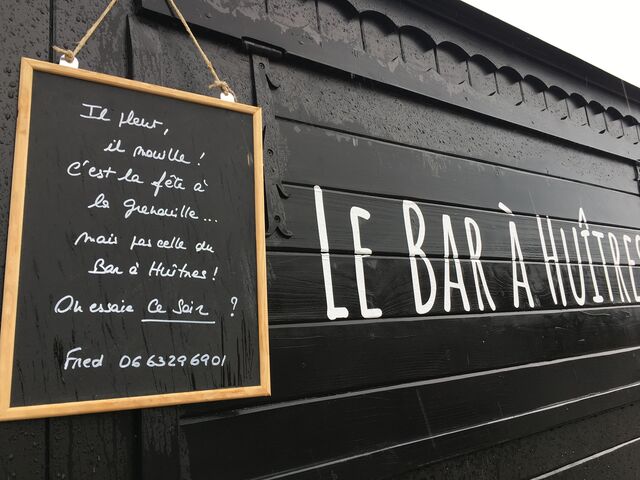 Il pleut,
il mouille !
C'est la fête à
la grenouille...
mais pas celle du
Bar à Huîtres !
On essaie ce soir ?
Fred 0663296901
LE BAR À HUÎTRES